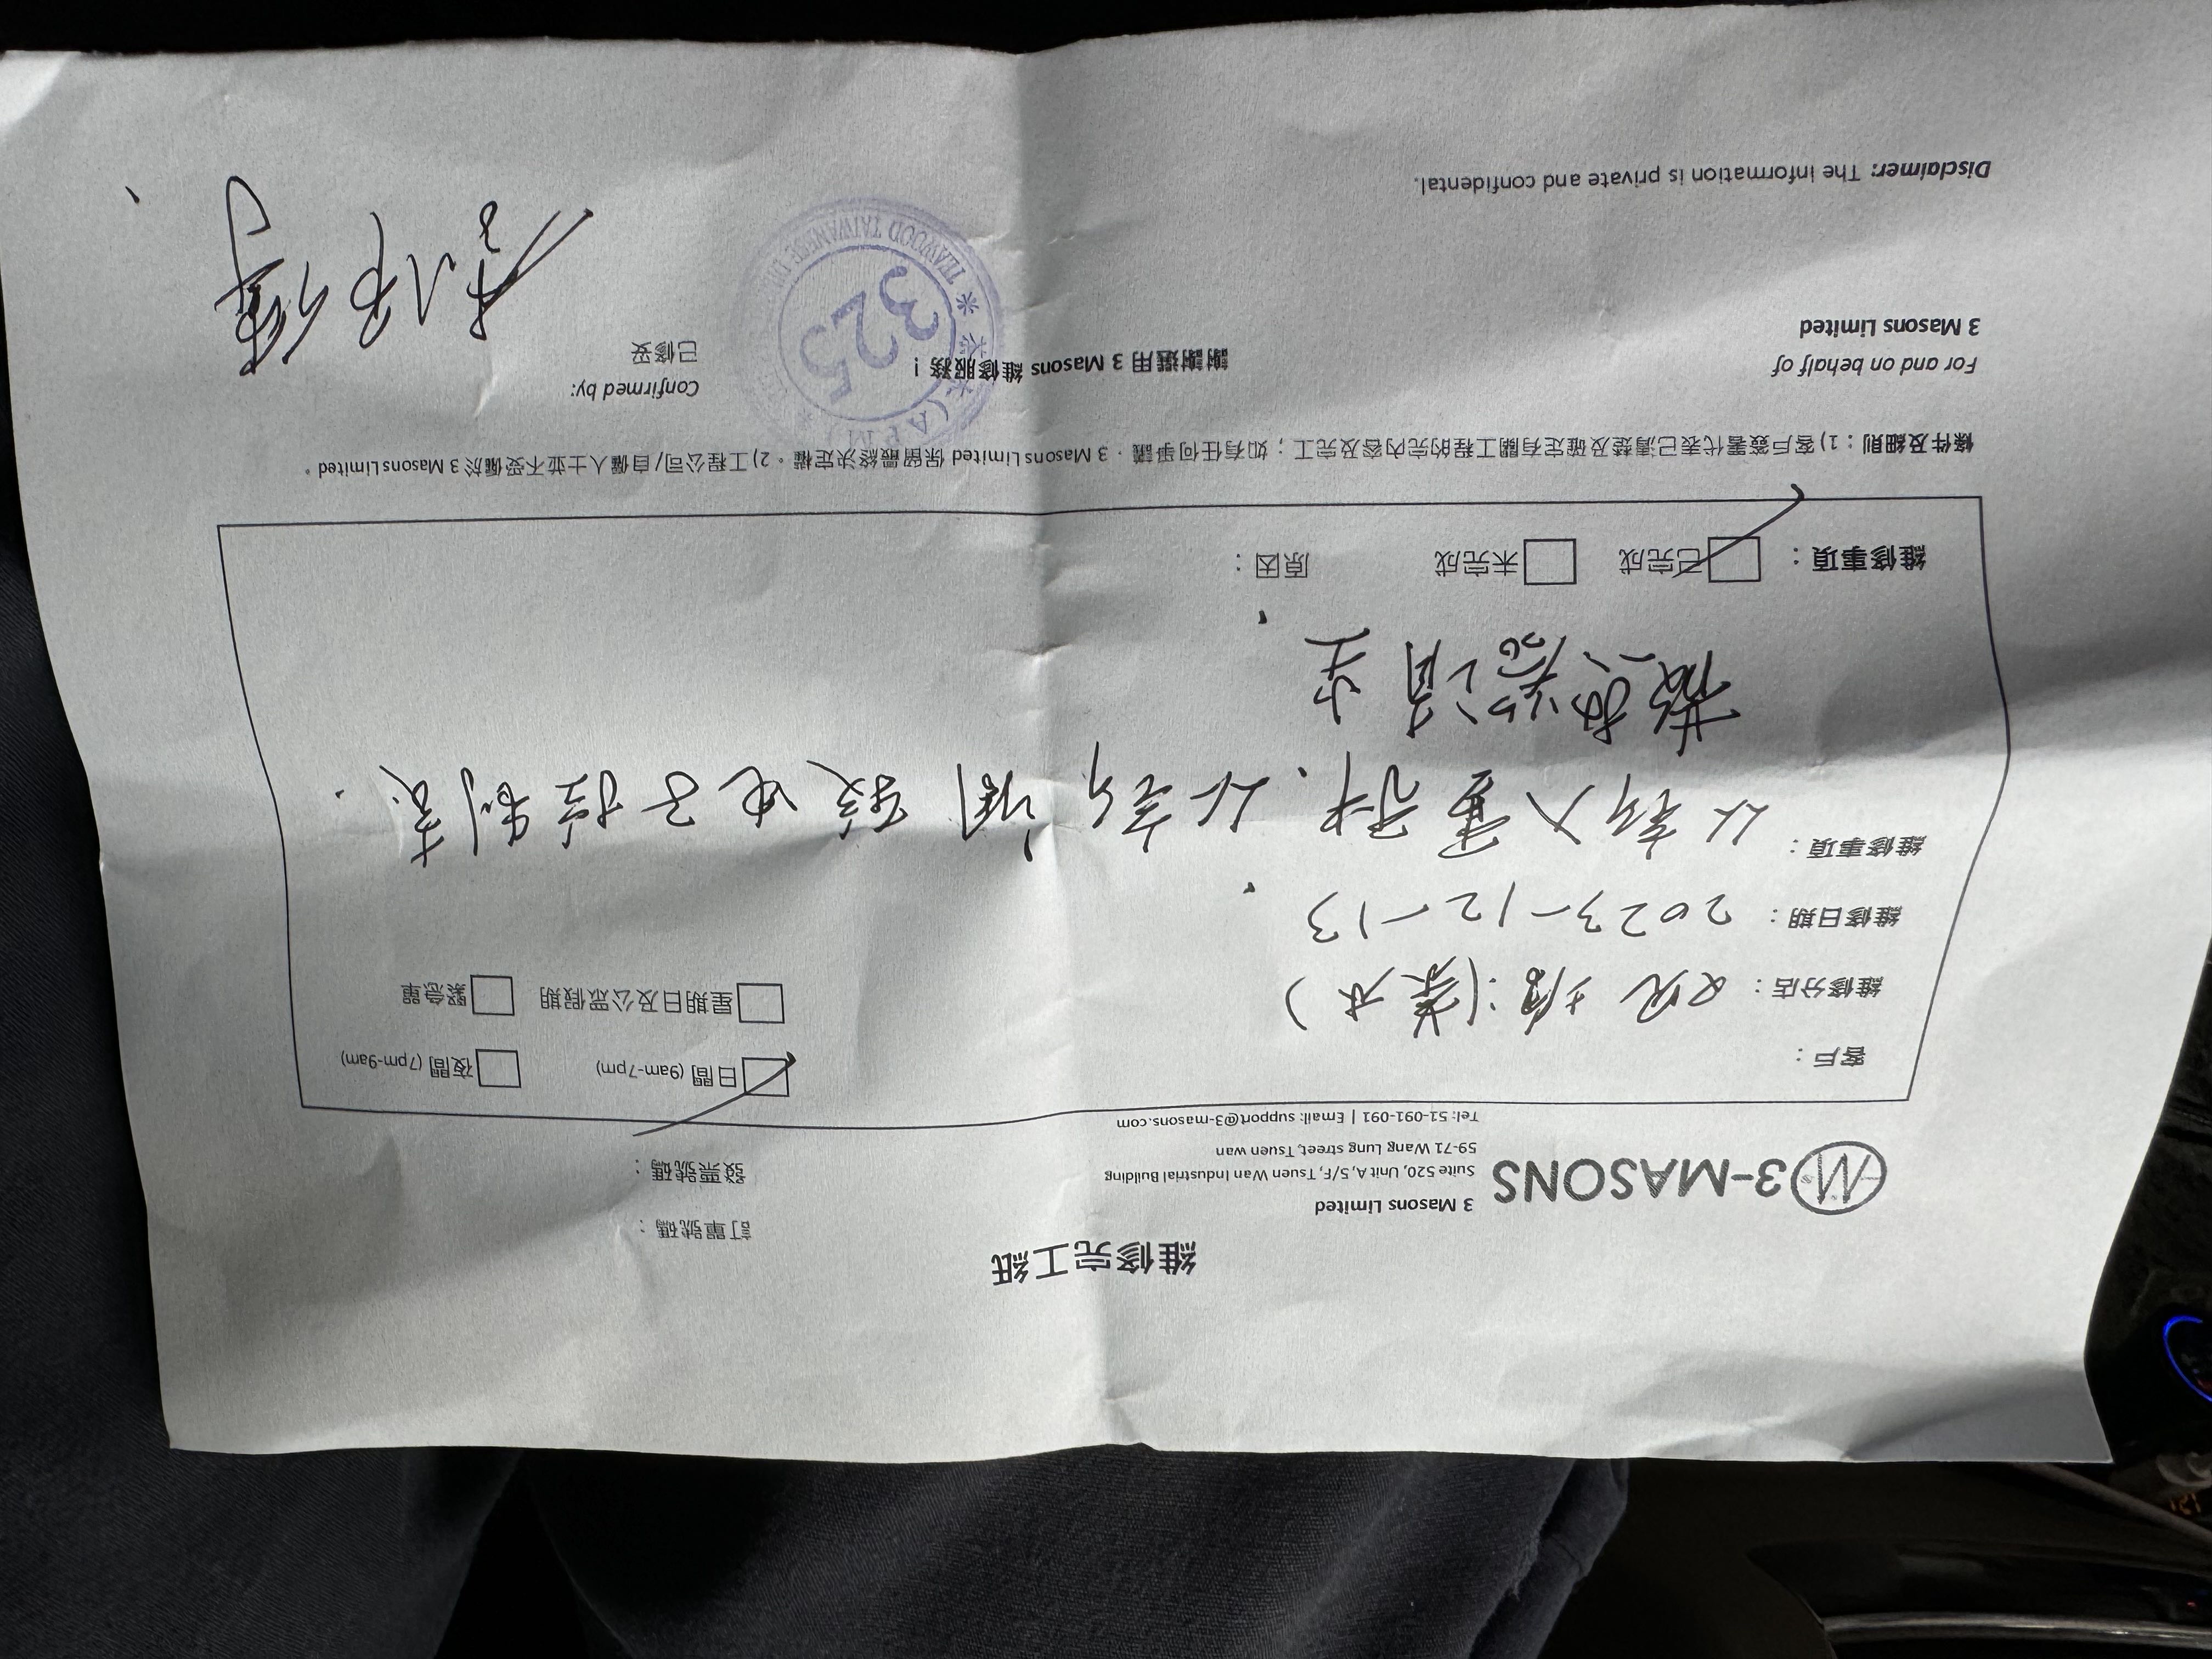 維修完工紙
3-MASONS
3 Masons Limited
Suite 520, Unit A, 5/F, Tsuen Wan Industrial Building
59-71 Wang Lung street, Tsuen wan
Tel: 51-091-091 | Email: support@3-masons.com
訂單號碼：
發票號碼：
客戶：
日間 (9am-7pm) 夜間 (7pm-9am)
維修分店： 觀塘(茶木)
星期日及公眾假期 緊急單
維修日期： 2023-12-13
維修事項： 重 調較电子控制表.
散热器清尘
維修事項： 已完成 未完成 原因：
條件及細則：1) 客戶簽署代表已清楚及確定有關工程的完內容及完工；如有任何爭議，3 Masons Limited 保留最終決定權。2) 工程公司/自僱人士並不受僱於 3 Masons Limited。
For and on behalf of
3 Masons Limited
謝謝選用 3 Masons 維修服務！
Confirmed by:
已修妥
325
TEAWOOD TAIWANESE
(APM)
Disclaimer: The information is private and confidental.